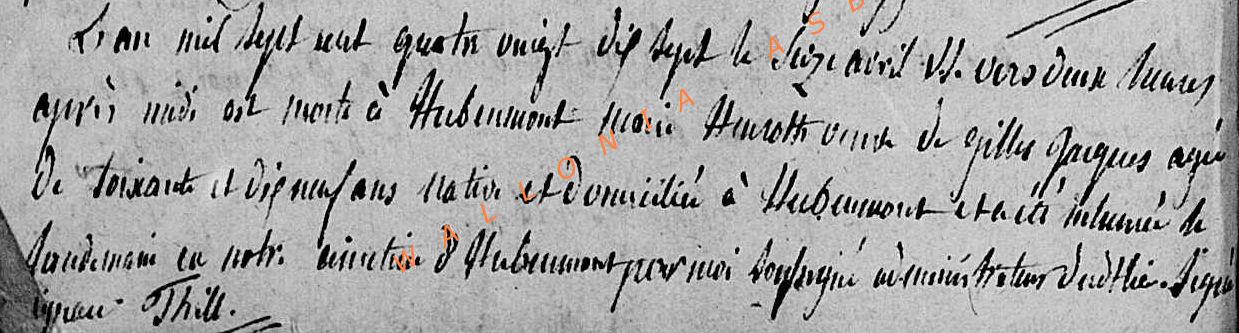 L'an mil sept cent quatre vingt dix sept le seize avril v.s. vers deux heures
après midi est morte à Hubermont Marie Henrotte veuve de Gilles Jacques agée
de soixante et dix neuf ans native et domiciliée à Hubermont et a été inhumée le
lendemain en notre cimetiere d'Hubermont par moi soussigné administrateur d'. Signé
ignace Thill.
WALLONIA ASB